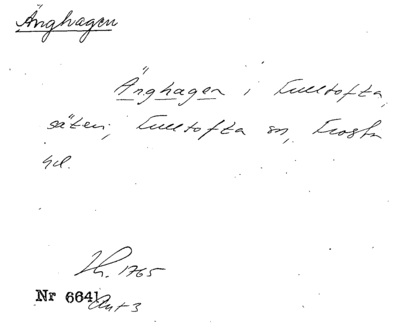 Änghagen
Änghagen i Fulltofta,
säteri, Fulltofta sn, Frosta
hd.
Lh. 1765
Nr 6641 Akt 3